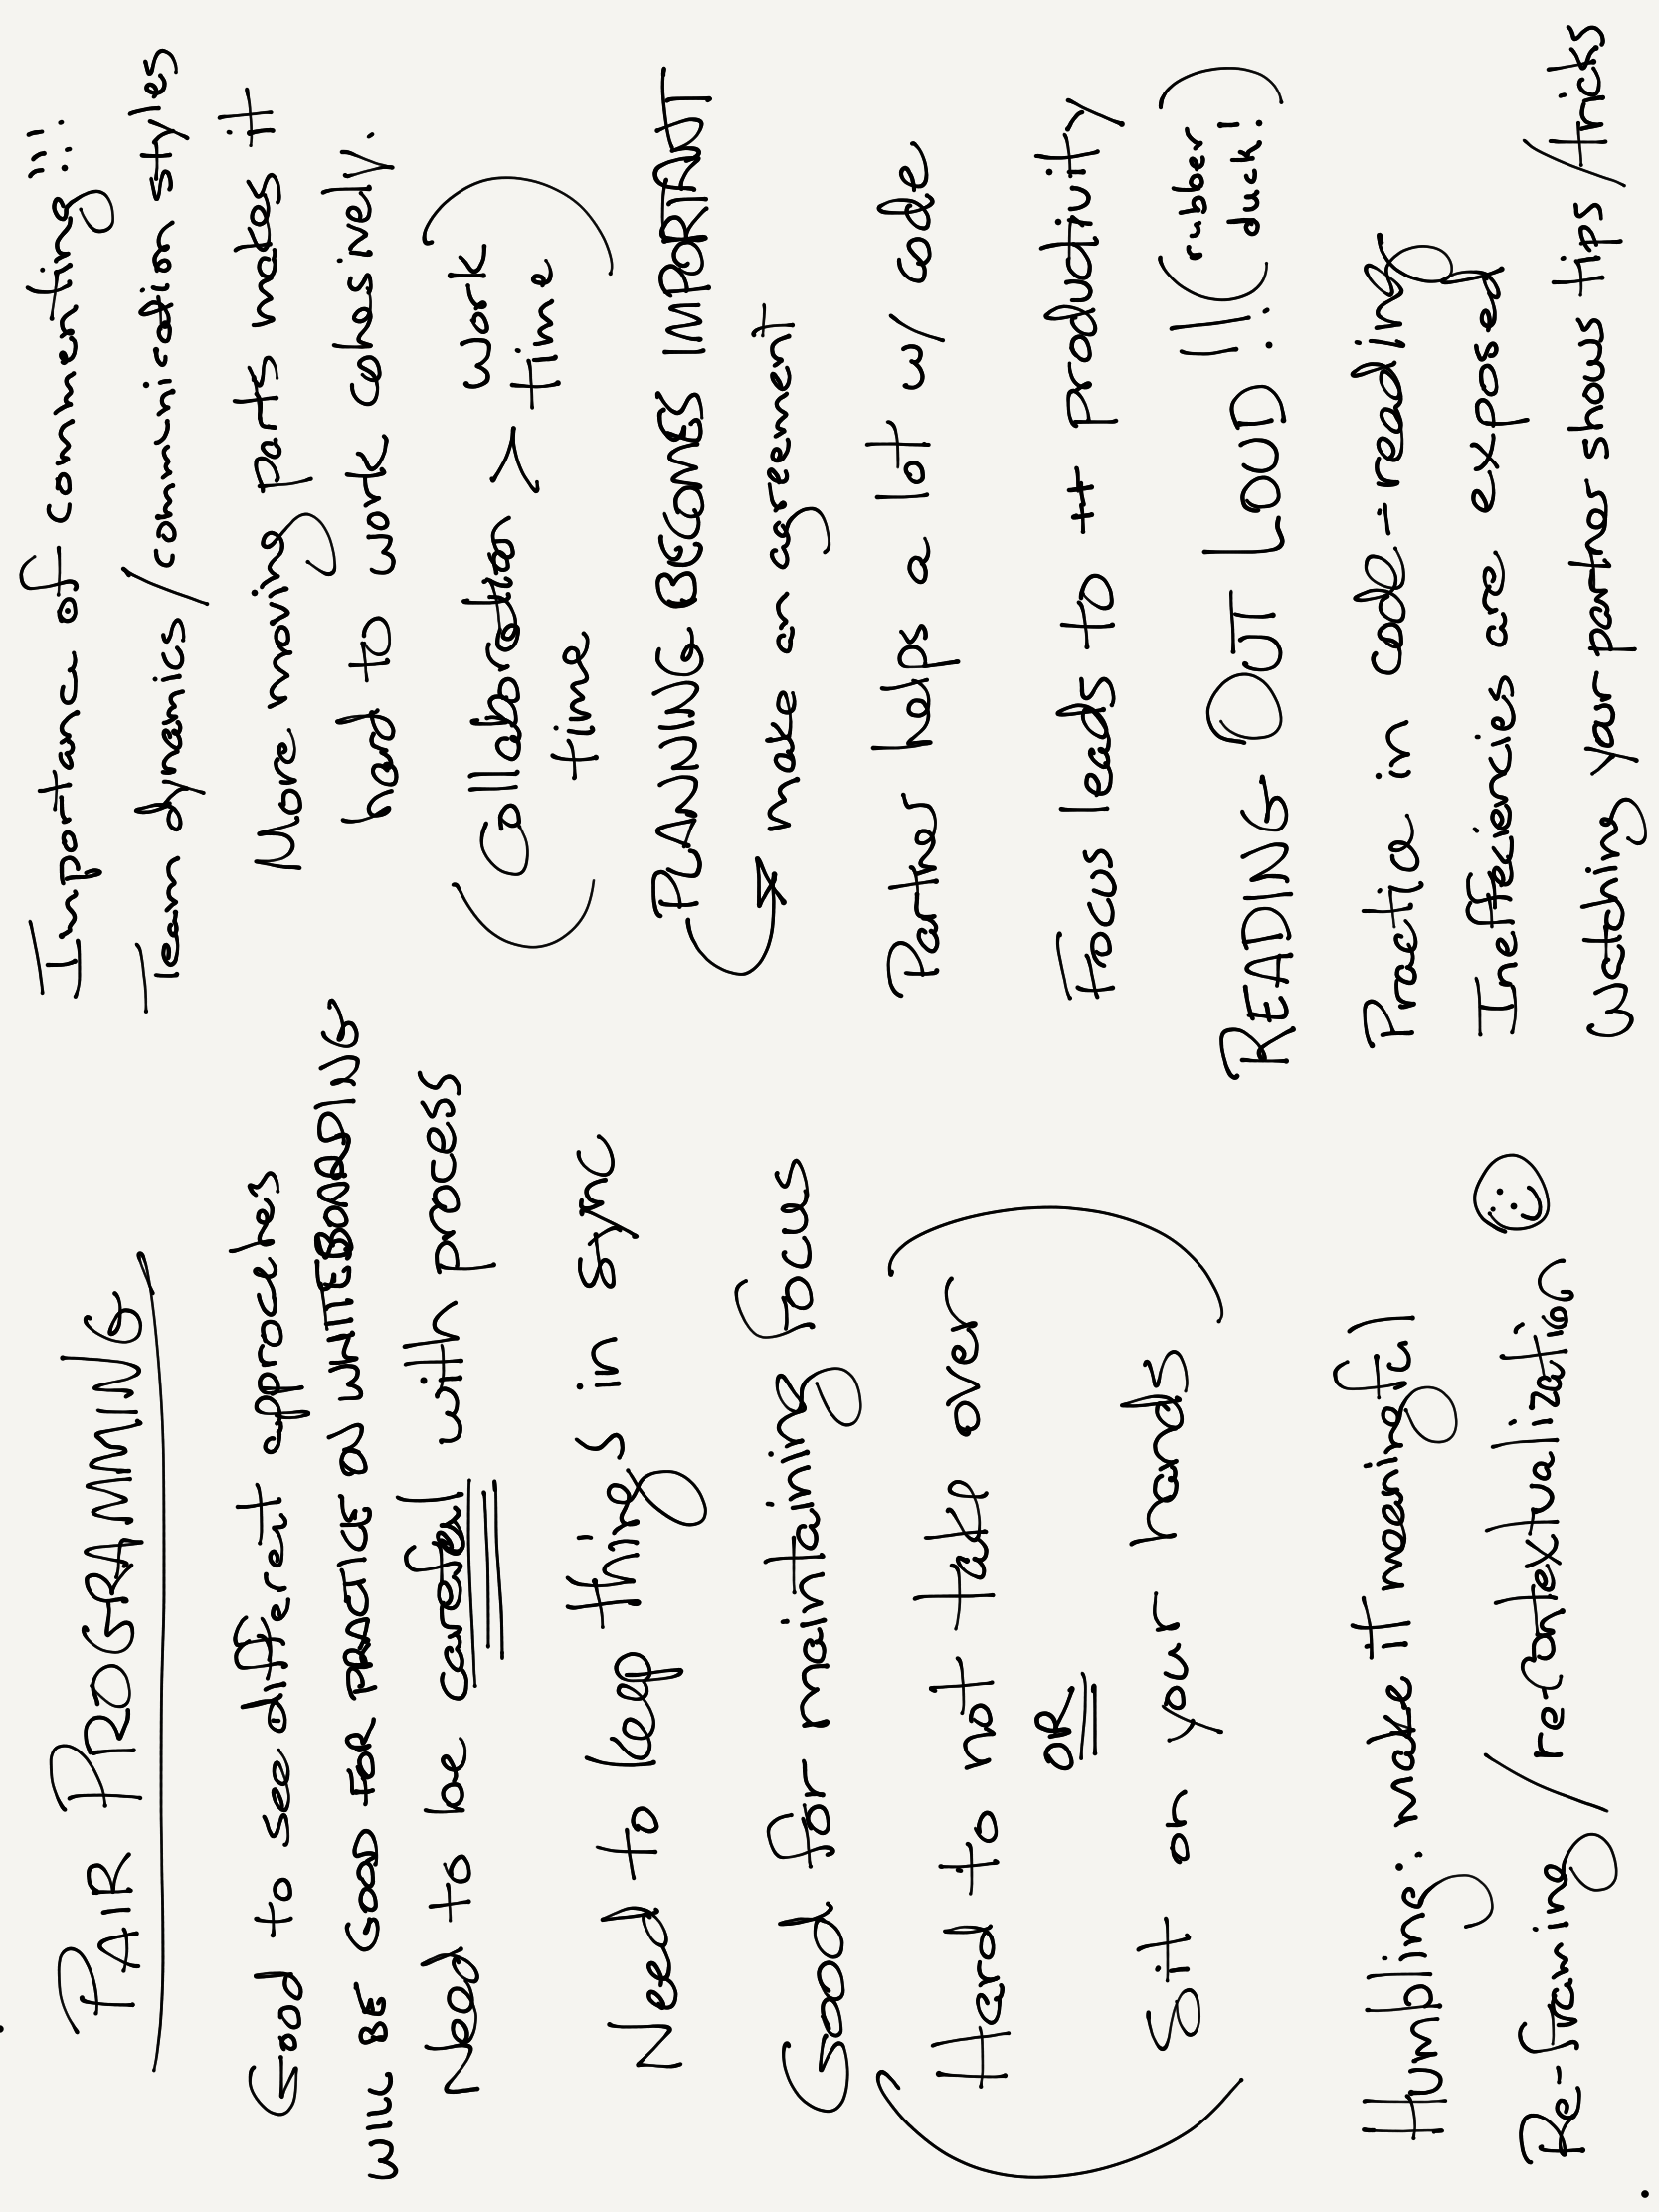 PAIR PROGRAMMING
Good to see different approches
WILL BE GOOD FOR PRACTICE ON WHITEBOARDING
Need to be careful with process
Need to keep things in sync
Good for maintaining focus
(Hard to not take over
OR
Sit on your hands)
Humbling: make it meaningful
Re-framing / recontextualization
Importance of commenting!!!
Team dynamics / communication styles
More moving parts makes it
hard to work cohesively.
(Collaboration > work
time time)
PLANNING BECOMES IMPORTANT
make an agreement
Partner helps a lot w/ code
Focus leads to ++ productivity
READING OUT LOUD!! (rubber
duck!)
Practice in code-reading
Ineffeciencies are exposed
Watching your partner shows tips / tricks